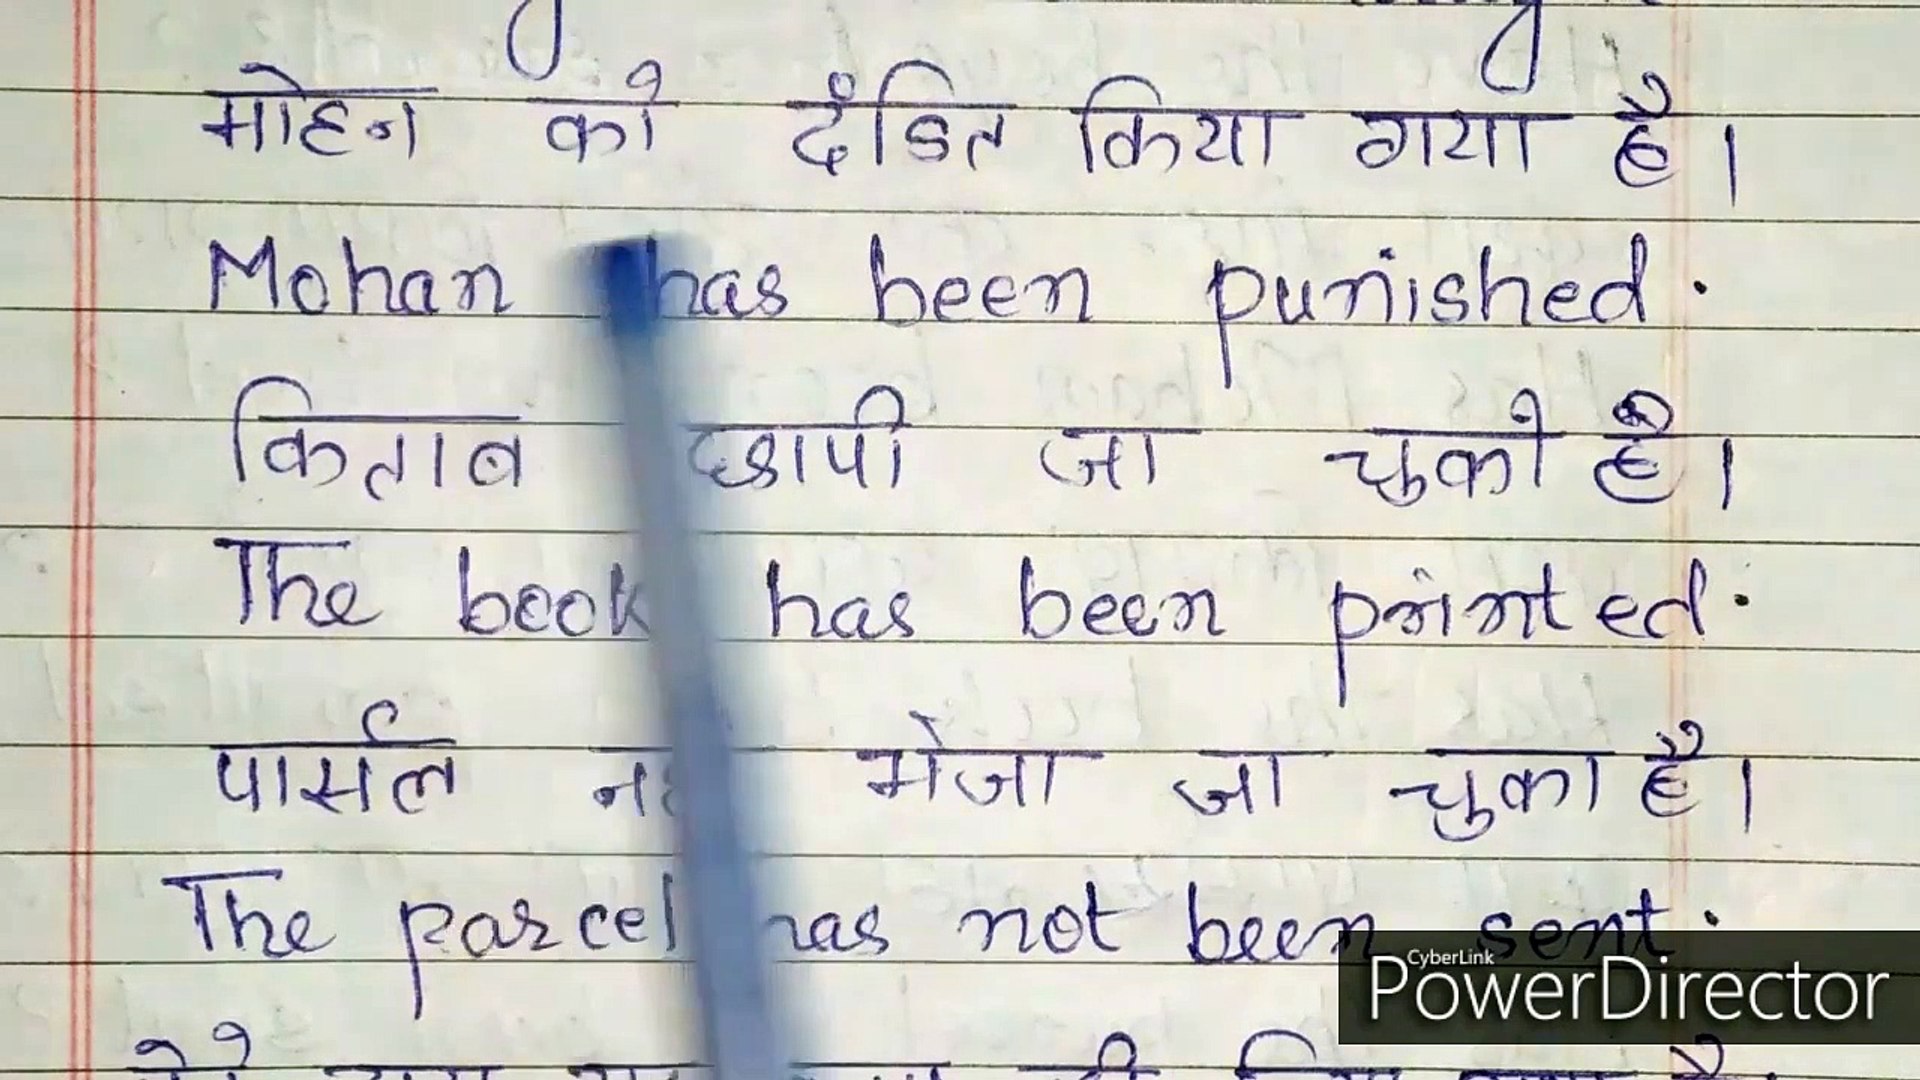 मोहन को दंडित किया गया है।
Mohan has been punished.
किताब छापी जा चुकी है।
The book has been printed.
पार्सल भेजा जा चुका है।
The parcel has not been sent.
CyberLink
PowerDirector